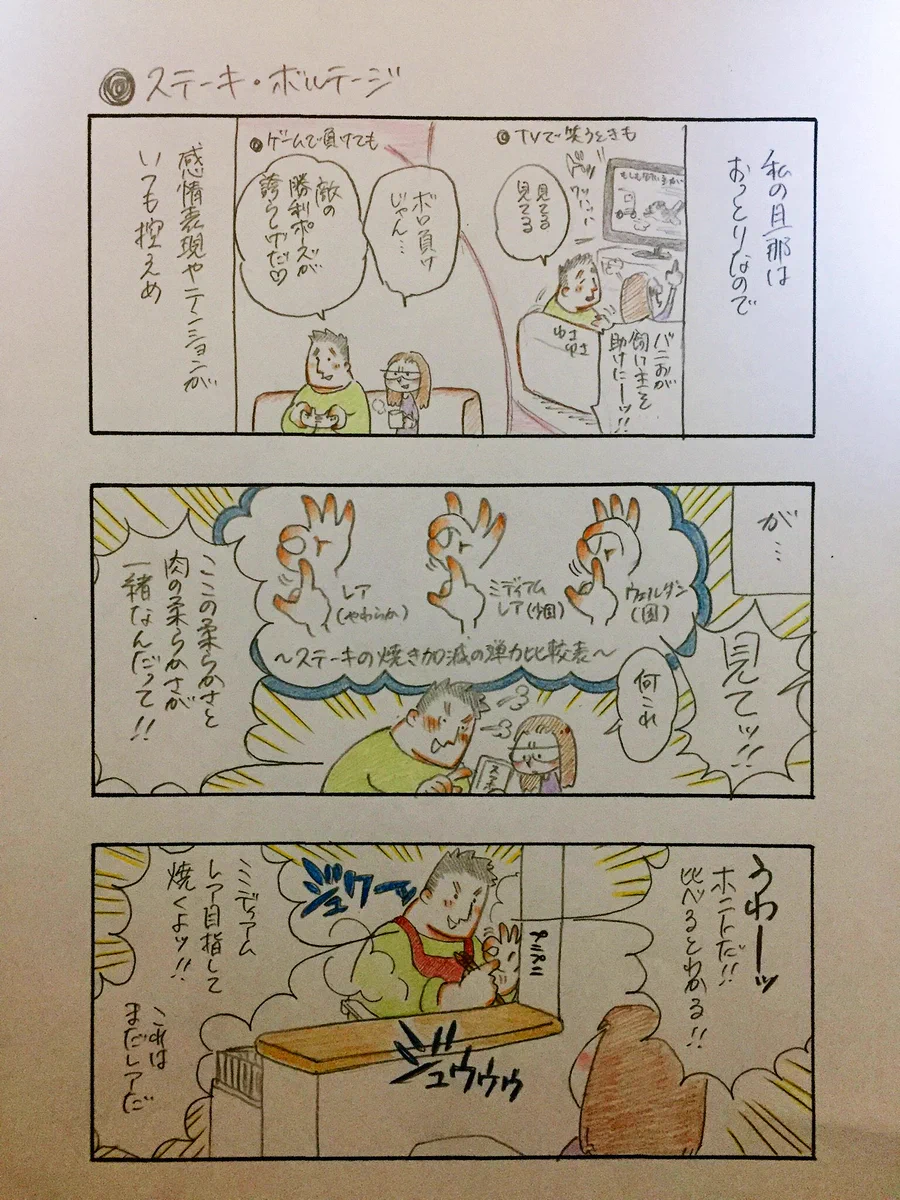 ステーキ・ボルテージ
私の旦那は
おっとりなので
●TVで笑うときも
見てる
見てる
バニおが
飼い主を
助けたーッ!!
ゆさ
ゆさ
●ゲームで負けても
ボロ負け
じゃん…
敵の
勝利ポーズが
誇らしげだ♡
感情表現やテンションが
いつも控えめ
が…
見てッ!!
何これ
レア
(やわらか)
ミディアム
レア
ウェルダン
(固)
〜ステーキの焼き加減の弾力比較表〜
ここの柔らかさと
肉の柔らかさが
一緒なんだって!!
うわーッ
ホントだ!!
比べるとわかる!!
ジュワーッ
ジュウゥゥ
ミディアム
レア目指して
焼くよッ!!
これは
まだレアだ